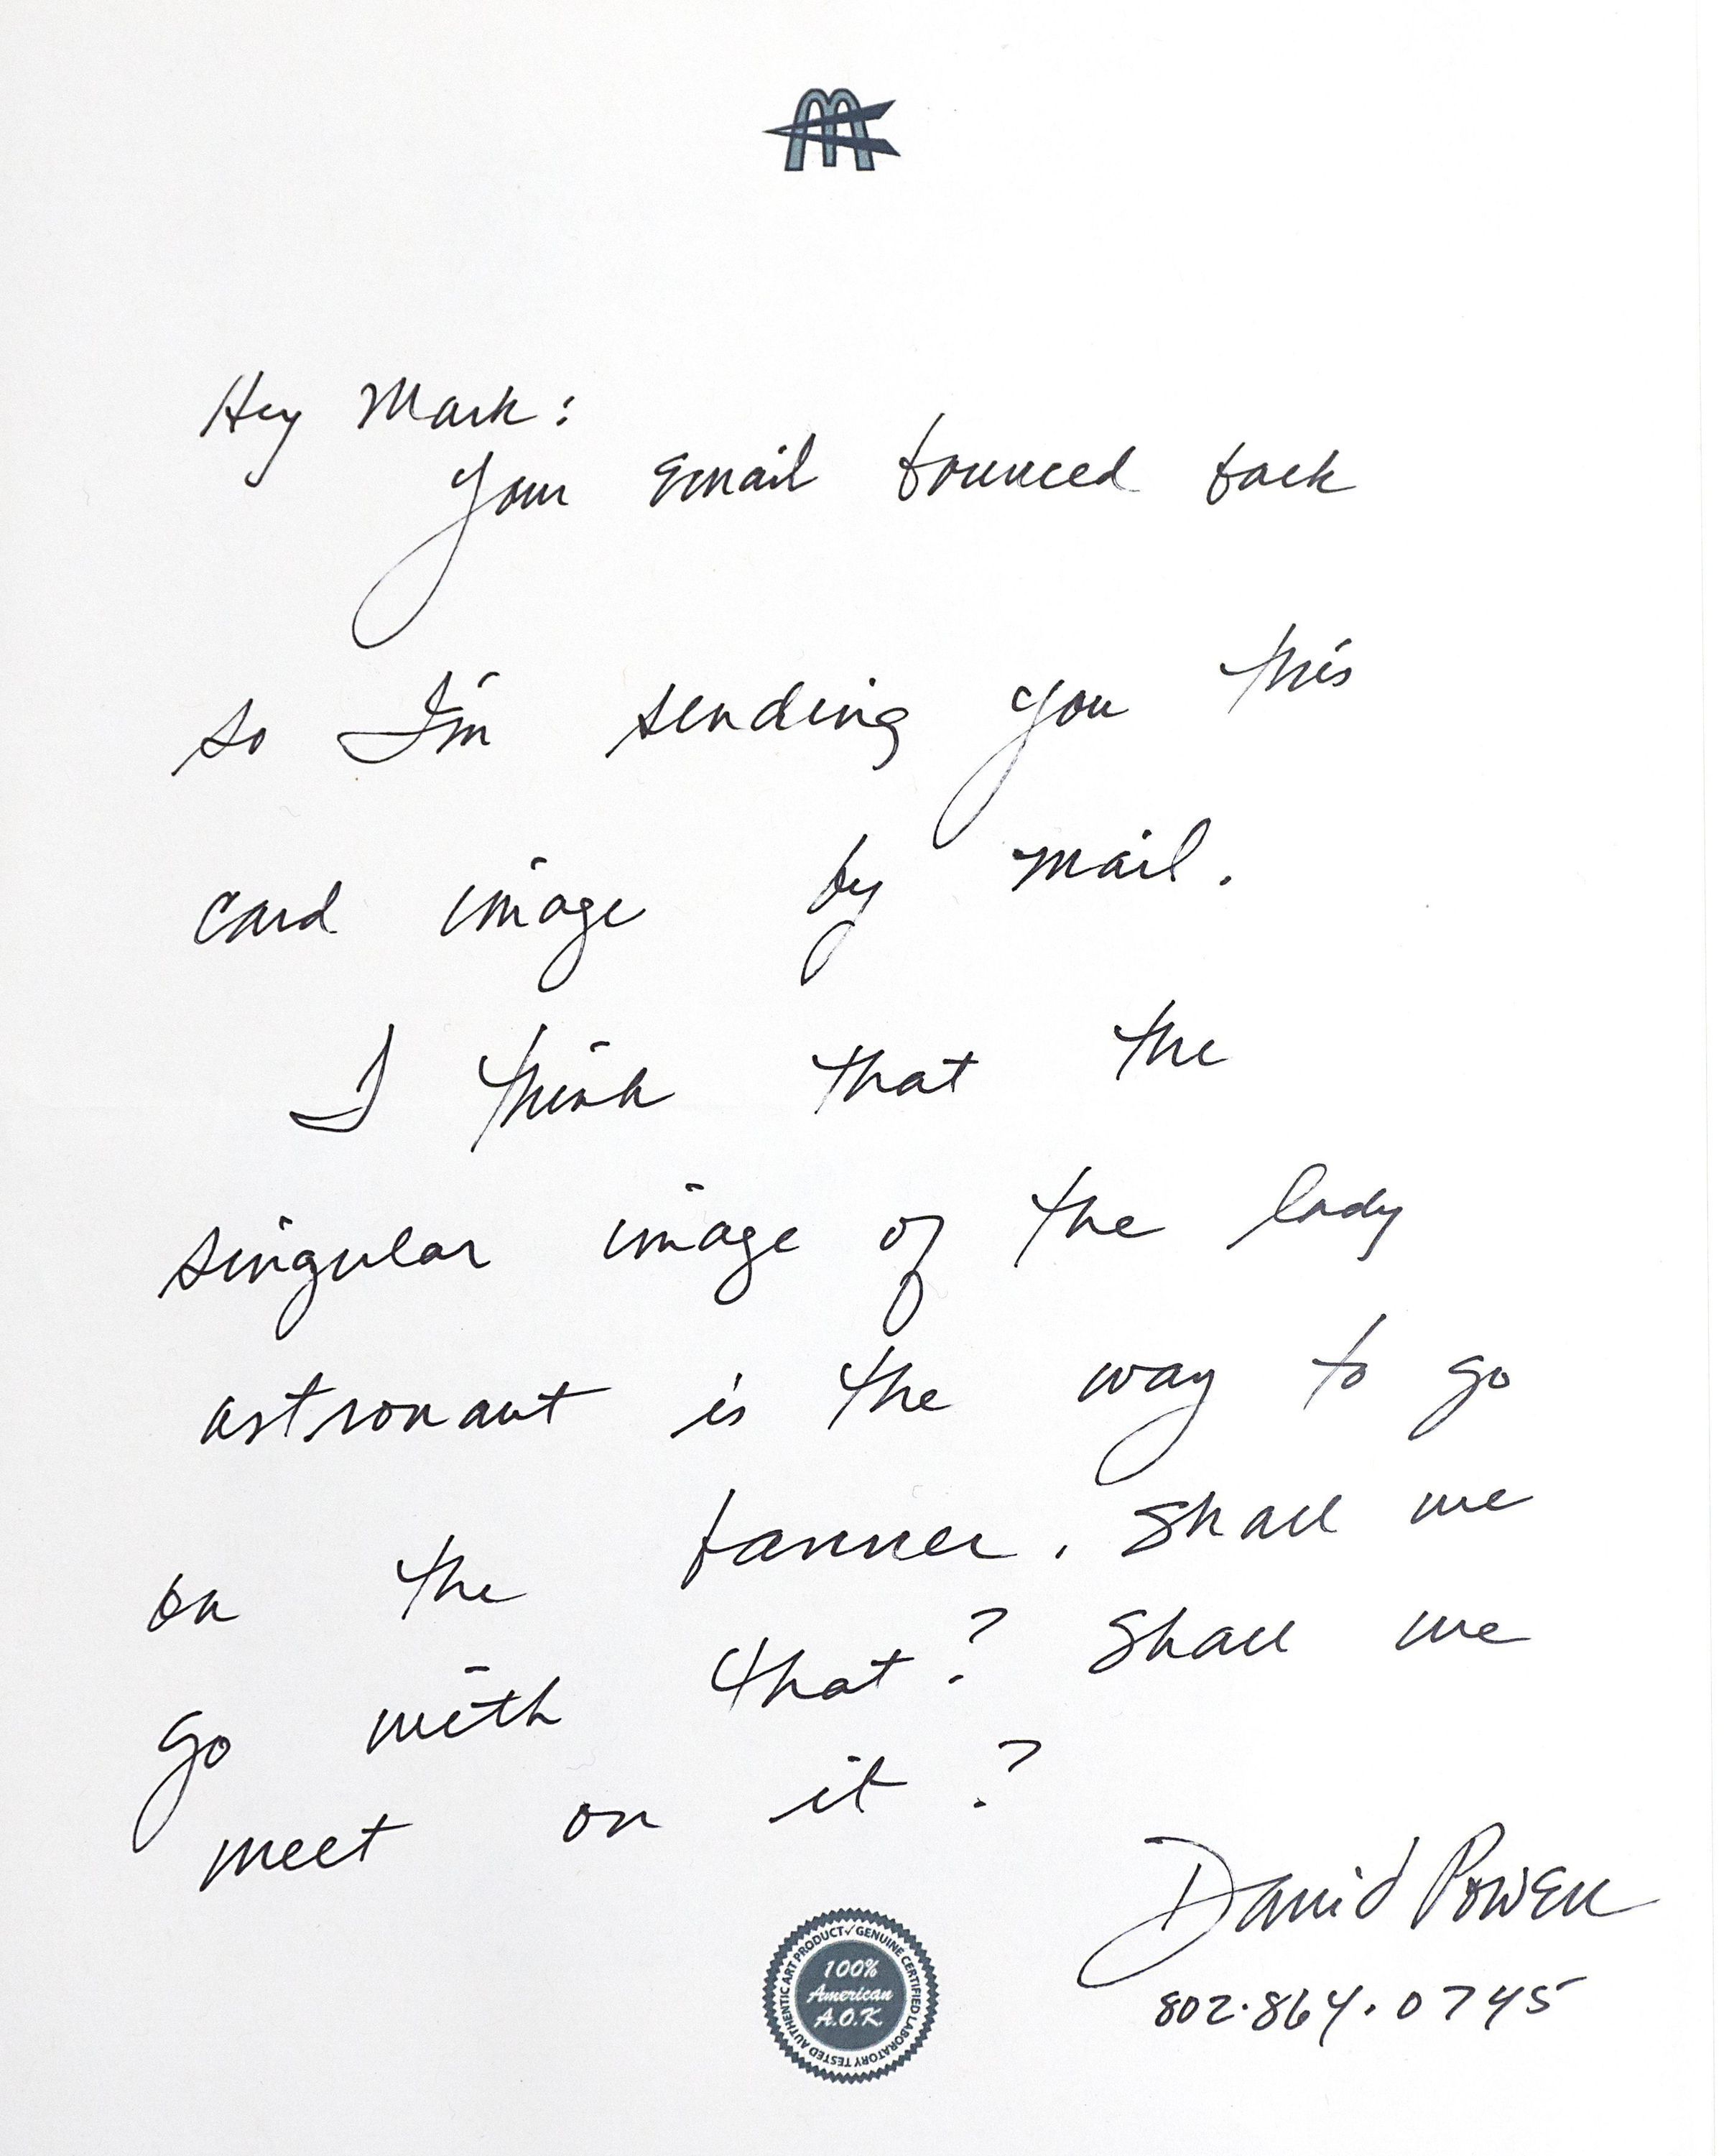 Hey Mark:
Your Email bounced back
so I'm sending you this
card image by mail.
I think that the
singular image of the lady
astronaut is the way to go
on the banner. Shall we
go with that? Shall we
meet on it?
David Powell
802.864.0745
AUTHENTIC ART PRODUCT✓GENUINE CERTIFIED LABORATORY TESTED
100%
American
A.O.K.